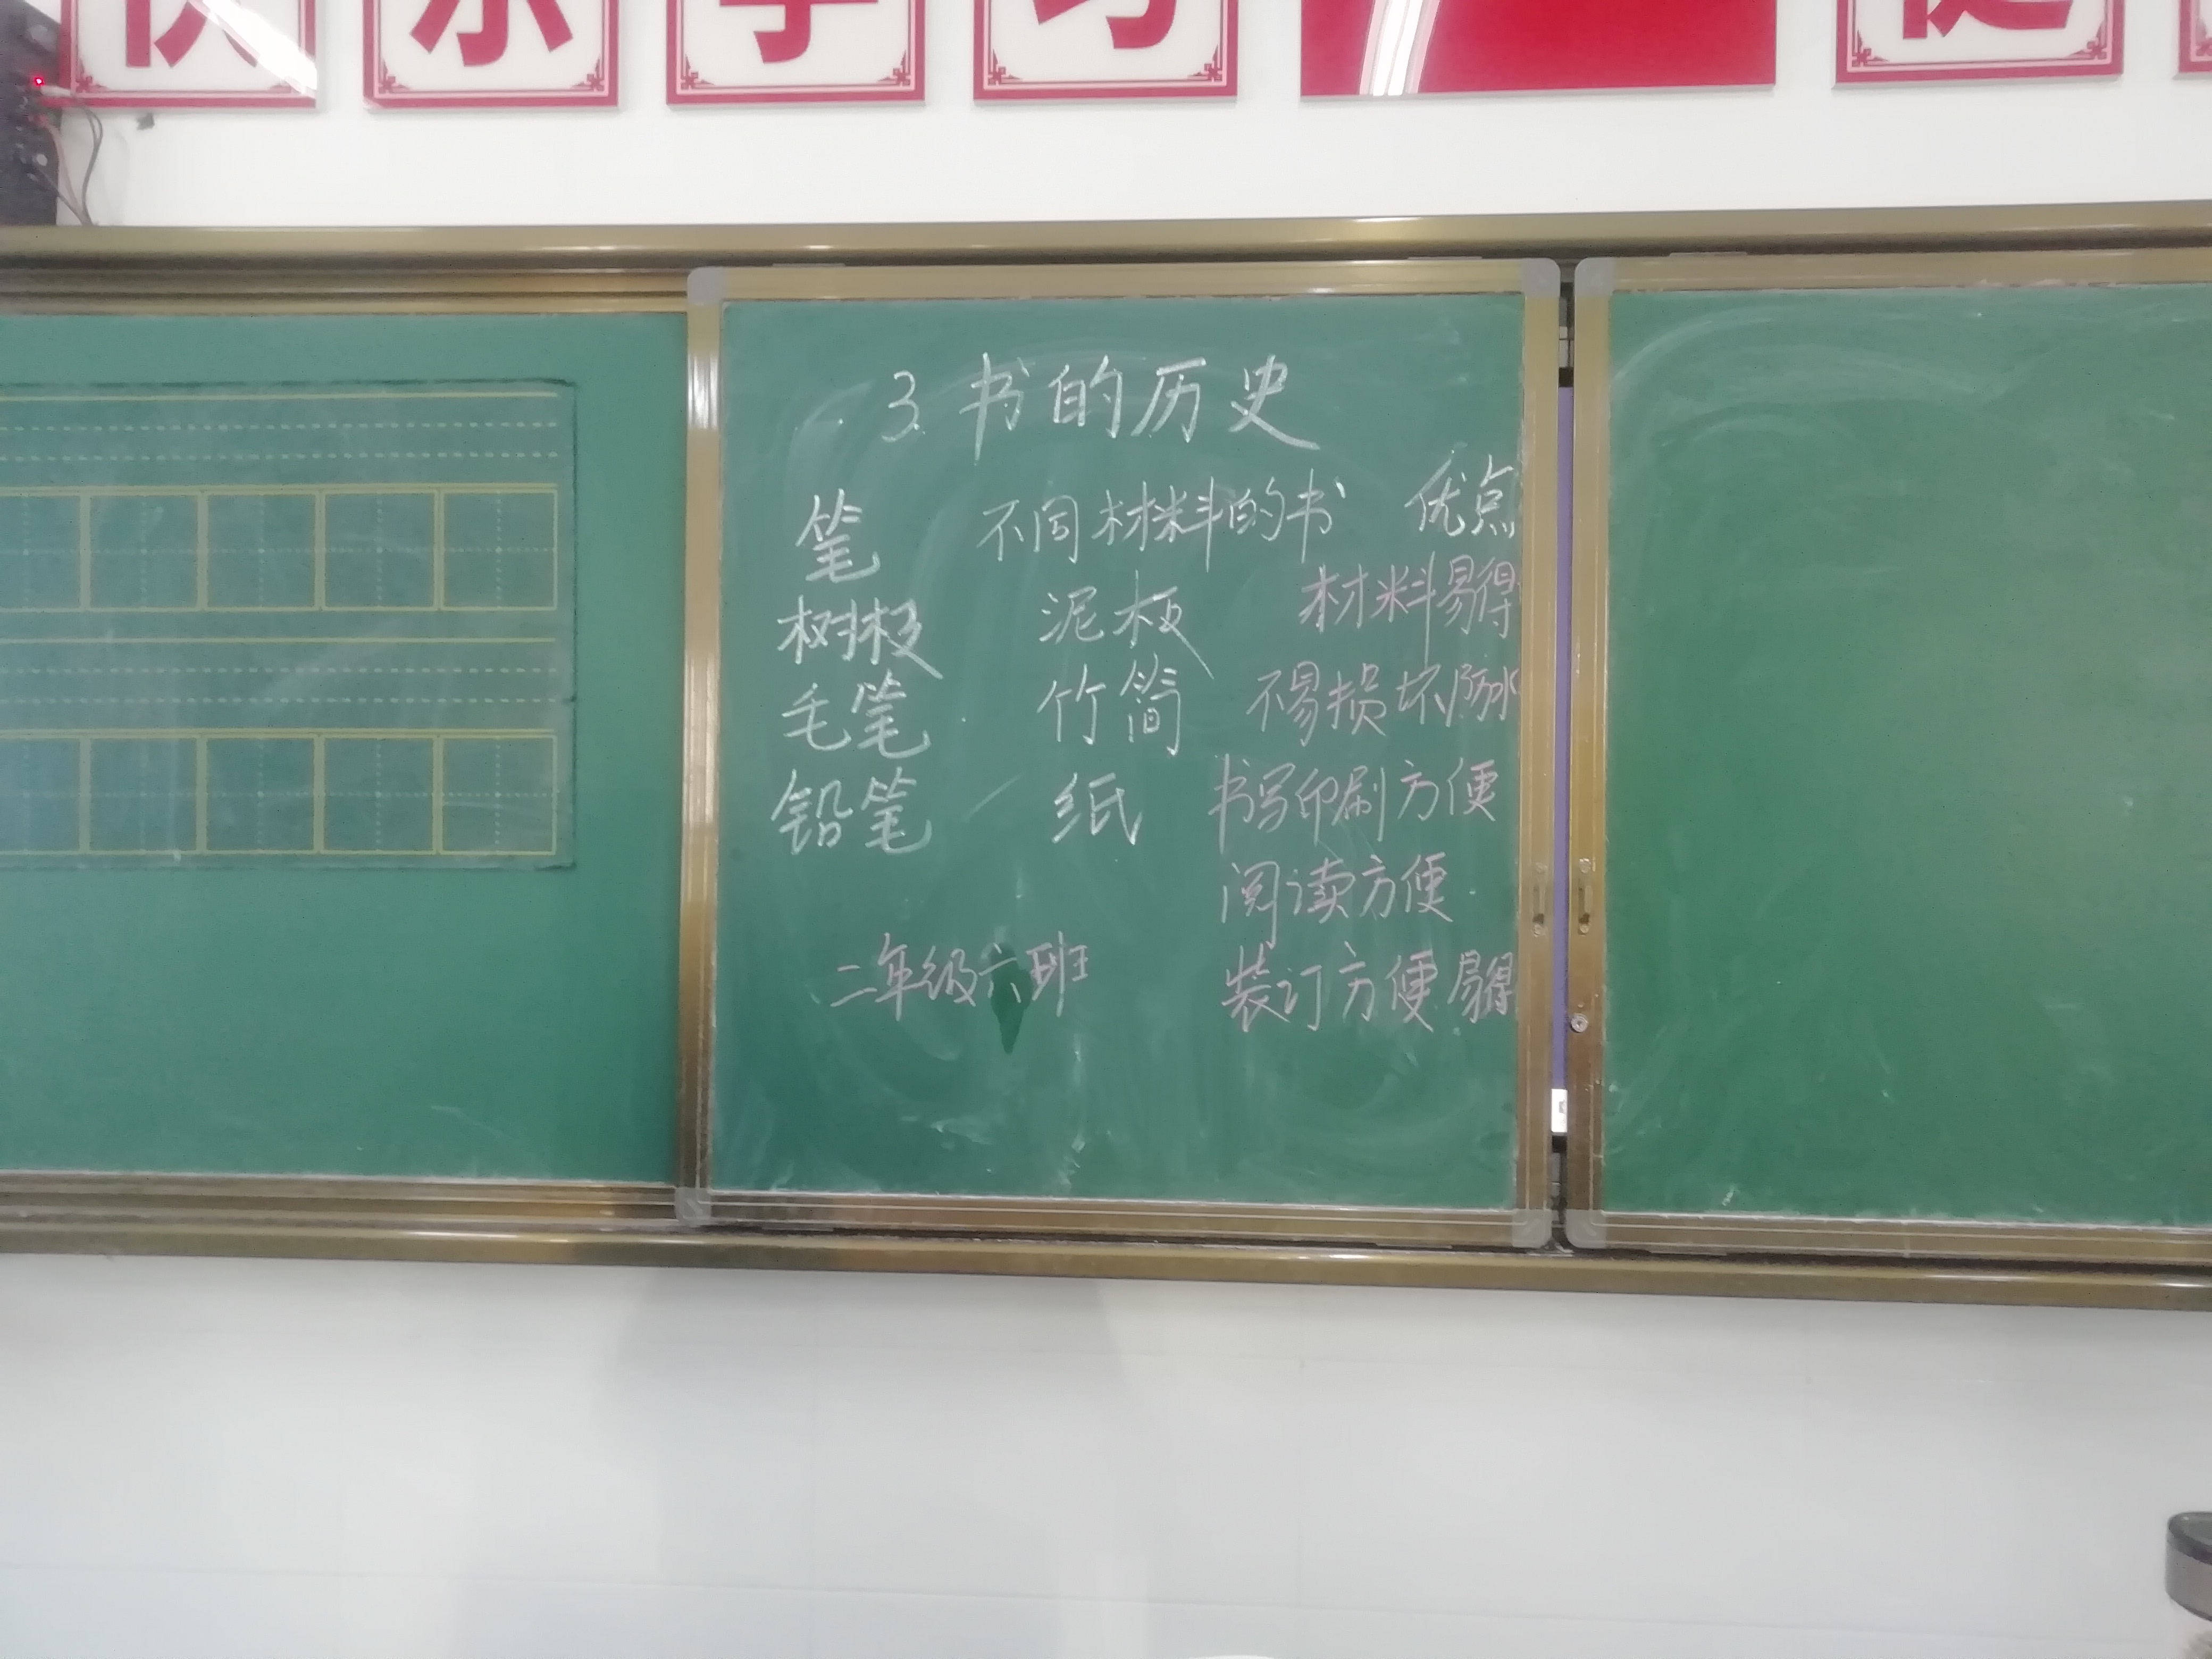 快乐学习 健
3. 书的历史
笔 不同材料的书 优点
树枝 泥板 材料易得
毛笔 竹简 不易损坏防水
铅笔 纸 书写印刷方便
阅读方便
二年级六班 装订方便易得